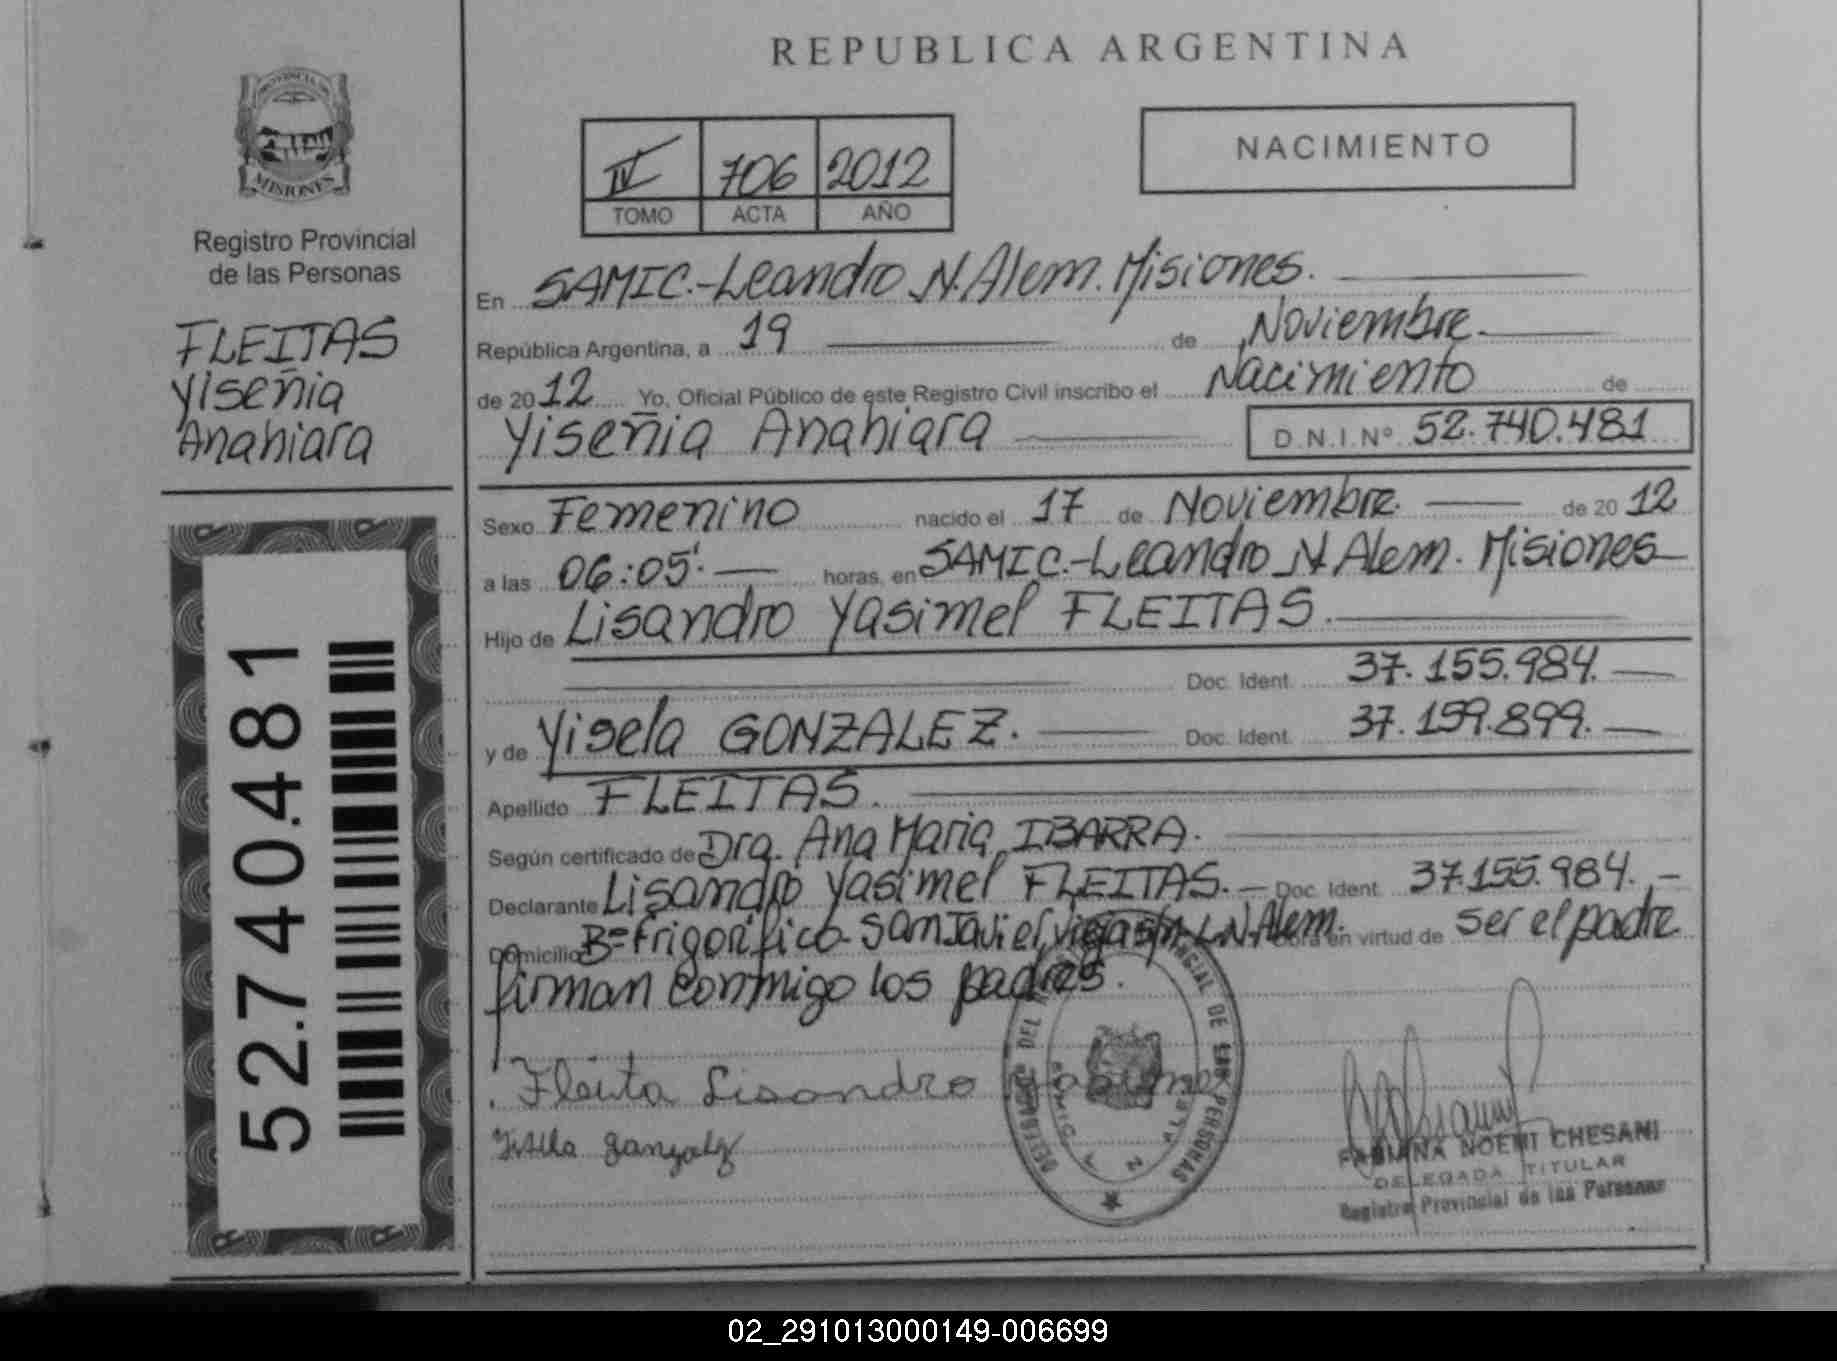 REPUBLICA ARGENTINA
PROVINCIA DE
MISIONES
Registro Provincial
de las Personas
FLEITAS
Yiseñia
Anahiara
52.740.481
IV 706 2012
TOMO ACTA AÑO
NACIMIENTO
En SAMIC.-Leandro N. Alem. Misiones.
República Argentina, a 19 de Noviembre
de 2012 Yo, Oficial Público de este Registro Civil inscribo el Nacimiento de
Yiseñia Anahiara D.N.I.Nº 52.740.481
Sexo Femenino nacido el 17 de Noviembre. de 2012
a las 06:05'. horas, en SAMIC.-Leandro N Alem. Misiones
Hijo de Lisandro Yasimel FLEITAS.
Doc. Ident. 37.155.984.
y de Yisela GONZALEZ. Doc. Ident. 37.159.899.
Apellido FLEITAS.
Según certificado de Dra. Ana Maria IBARRA.
Declarante Lisandro Yasimel FLEITAS. Doc. Ident. 37.155.984.-
Domicilio Bº Frigorífico. San Javier vieja s/n L.N. Alem. Obra en virtud de ser el padre
firman conmigo los padres.
Fleita Lisandro
gonzalez
DEL PROVINCIAL DE LAS PERSONAS
FABIANA NOEMI CHESANI
DELEGADA TITULAR
Registro Provincial de las Personas
02_291013000149-006699